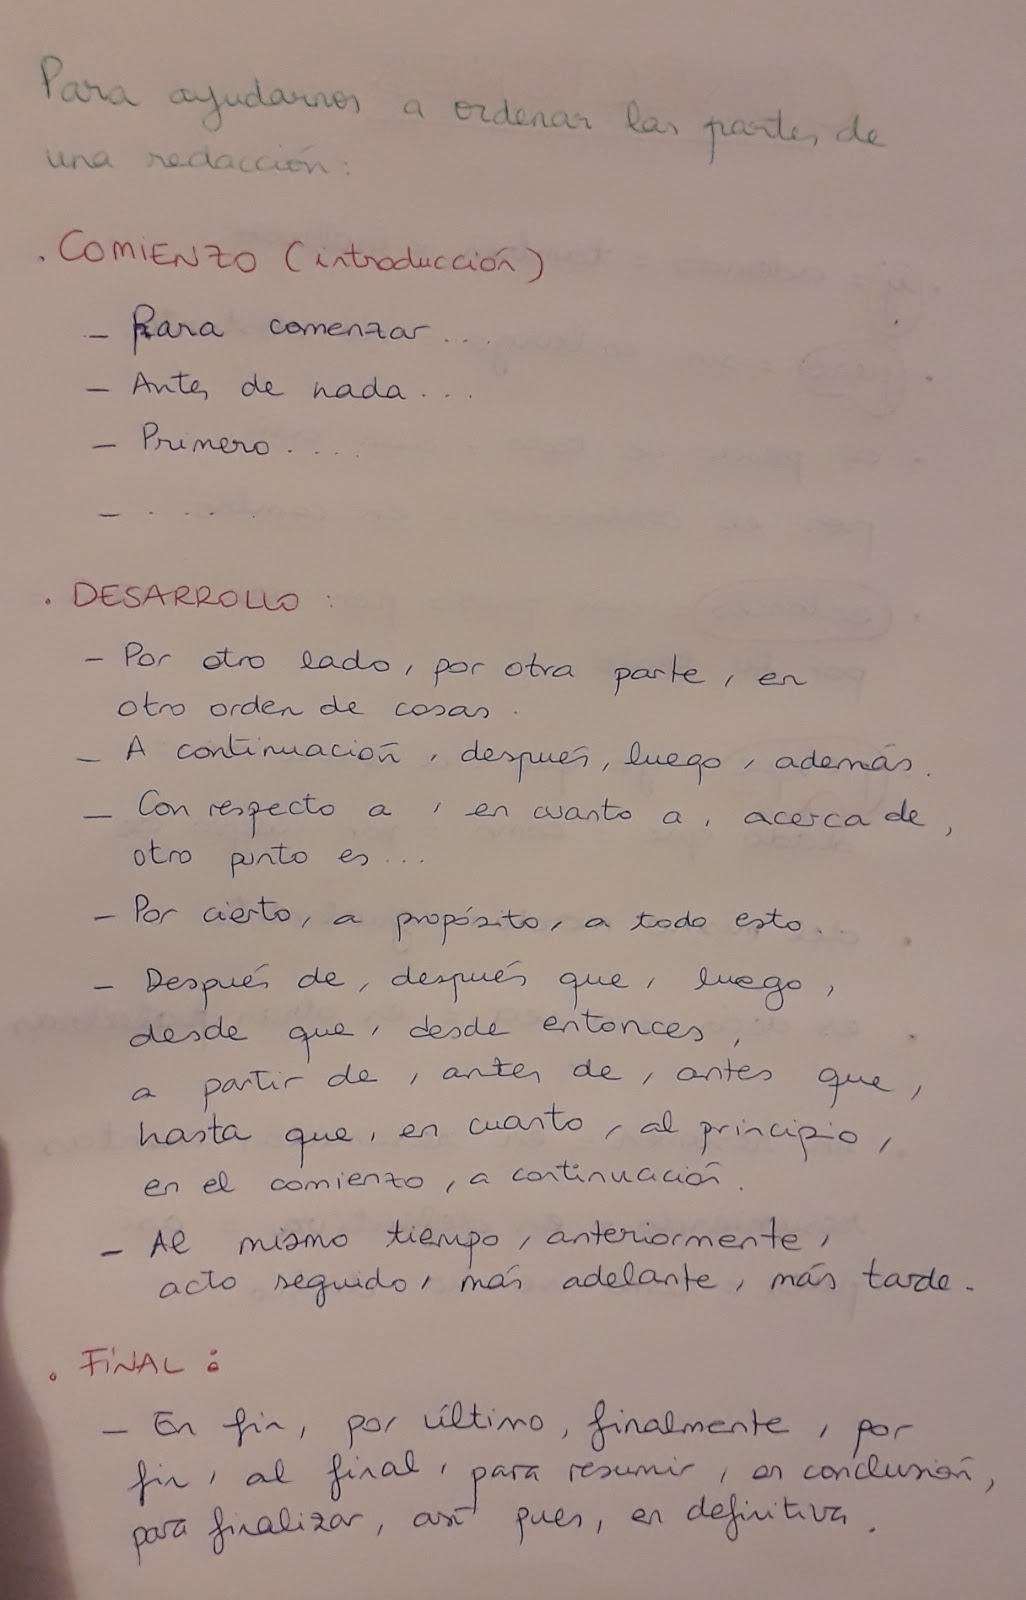 Para ayudarnos a ordenar las partes de
una redacción:
. COMIENZO (introducción)
– Para comenzar ...
– Antes de nada ...
– Primero ....
– .....
. DESARROLLO :
– Por otro lado, por otra parte, en
otro orden de cosas.
– A continuación, después, luego, además.
– Con respecto a , en cuanto a, acerca de,
otro punto es ...
– Por cierto, a propósito, a todo esto.
– Después de, después que, luego,
desde que, desde entonces,
a partir de, antes de, antes que,
hasta que, en cuanto, al principio,
en el comienzo, a continuación.
– Al mismo tiempo, anteriormente,
acto seguido, más adelante, más tarde.
. FINAL :
– En fin, por último, finalmente, por
fin, al final, para resumir, en conclusión,
para finalizar, así pues, en definitiva.